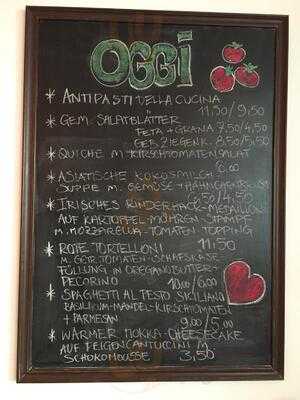 OGGI
* ANTIPASTI DELLA CUCINA
11,50/9,50
* GEM. SALATBLÄTTER
FETA + GRANA 7,50/4,50
GEB. ZIEGENK. 8,50/5,50
* QUICHE M. KIRSCHTOMATENSALAT
8,00
* ASIATISCHE KOKOSMILCH
SUPPE M. GEMÜSE + HÄHNCHENBRUST
6,50/4,50
* IRISCHES RINDERHACK-MEDAILLON
AUF KARTOFFEL-MÖHREN-STAMPF
M. MOZZARELLA-TOMATEN-TOPPING
11,50
* ROTE TORTELLONI
M. GETR. TOMATEN-SCHAFSKÄSE-
FÜLLUNG IN OREGANOBUTTER+
PECORINO 10,00/6,00
* SPAGHETTI AL PESTO SICILIANO
BASILIKUM-MANDEL-KIRSCHTOMATEN
+ PARMESAN 9,00/5,00
* WARMER MOKKA-CHEESECAKE
AUF FEIGENCANTUCCINI M.
SCHOKOMOUSSE 3,50